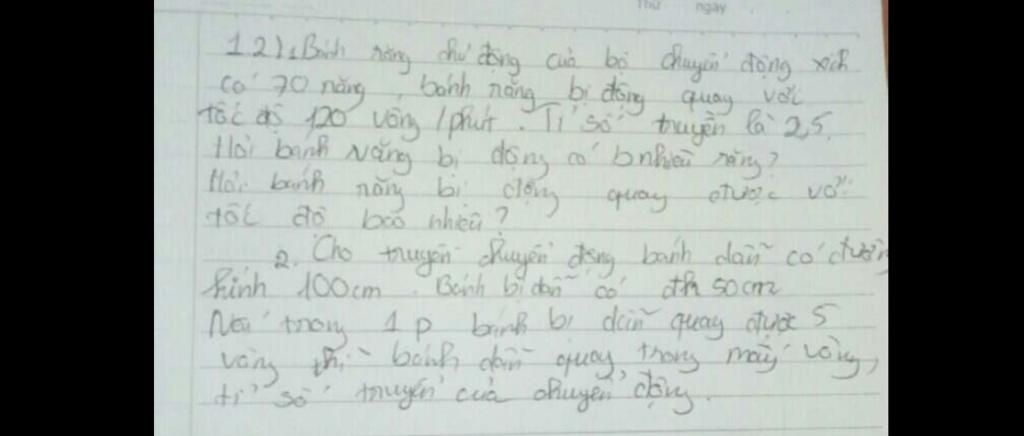 Thứ ngày
1.2)1.Bánh răng chủ động của bộ chuyển động xích
có 70 răng, bánh răng bị động quay với
tốc độ 120 vòng/phút. Tỉ số truyền là 2,5.
Hỏi bánh răng bị động có bnhiêu răng?
Hỏi bánh răng bị động quay được với
tốc độ bao nhiêu?
2. Cho truyền chuyển động bánh dẫn có đường
kính 100cm. Bánh bị dẫn có đk 50cm
Nếu trong 1p bánh bị dẫn quay được 5
vòng thì bánh dẫn quay trong mấy vòng,
tỉ số truyền của chuyển động.